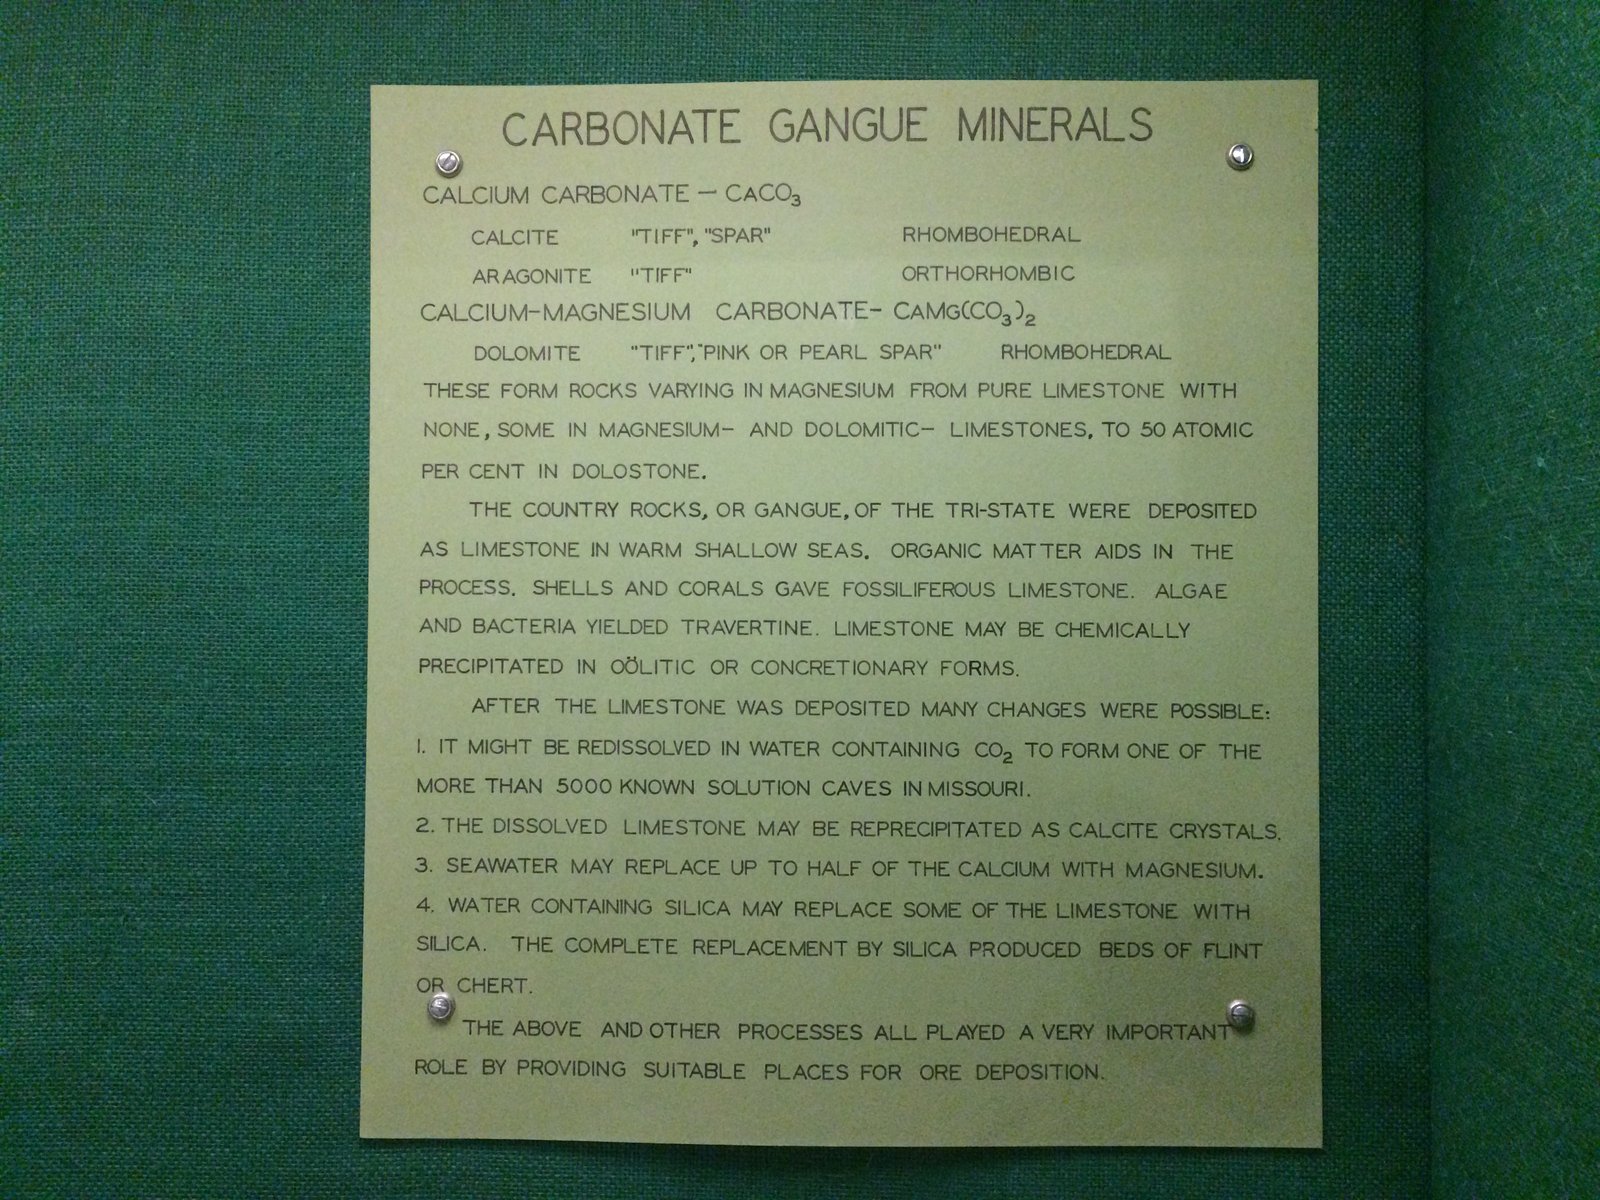 CARBONATE GANGUE MINERALS
CALCIUM CARBONATE — CACO₃
CALCITE "TIFF", "SPAR" RHOMBOHEDRAL
ARAGONITE "TIFF" ORTHORHOMBIC
CALCIUM-MAGNESIUM CARBONATE- CAMG(CO₃)₂
DOLOMITE "TIFF", "PINK OR PEARL SPAR" RHOMBOHEDRAL
THESE FORM ROCKS VARYING IN MAGNESIUM FROM PURE LIMESTONE WITH
NONE, SOME IN MAGNESIUM- AND DOLOMITIC- LIMESTONES, TO 50 ATOMIC
PER CENT IN DOLOSTONE.
THE COUNTRY ROCKS, OR GANGUE, OF THE TRI-STATE WERE DEPOSITED
AS LIMESTONE IN WARM SHALLOW SEAS. ORGANIC MATTER AIDS IN THE
PROCESS. SHELLS AND CORALS GAVE FOSSILIFEROUS LIMESTONE. ALGAE
AND BACTERIA YIELDED TRAVERTINE. LIMESTONE MAY BE CHEMICALLY
PRECIPITATED IN OÖLITIC OR CONCRETIONARY FORMS.
AFTER THE LIMESTONE WAS DEPOSITED MANY CHANGES WERE POSSIBLE:
1. IT MIGHT BE REDISSOLVED IN WATER CONTAINING CO₂ TO FORM ONE OF THE
MORE THAN 5000 KNOWN SOLUTION CAVES IN MISSOURI.
2. THE DISSOLVED LIMESTONE MAY BE REPRECIPITATED AS CALCITE CRYSTALS.
3. SEAWATER MAY REPLACE UP TO HALF OF THE CALCIUM WITH MAGNESIUM.
4. WATER CONTAINING SILICA MAY REPLACE SOME OF THE LIMESTONE WITH
SILICA. THE COMPLETE REPLACEMENT BY SILICA PRODUCED BEDS OF FLINT
OR CHERT.
THE ABOVE AND OTHER PROCESSES ALL PLAYED A VERY IMPORTANT
ROLE BY PROVIDING SUITABLE PLACES FOR ORE DEPOSITION.